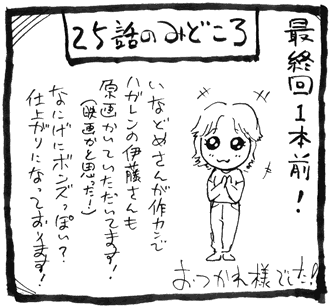 25話のみどころ
最終回1本前!
いなどめさんが作カンで
ハガレンの伊藤さんも
原画かいていただいてます!
(映画かと思った!)
なにげにボンズっぽい?
仕上がりになっております!
おつかれ様でした!